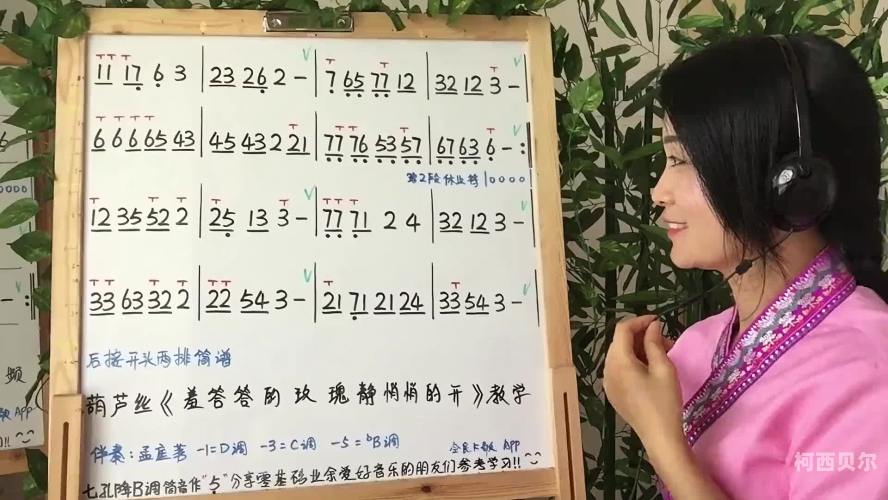 11 17 6 3 | 23 26 2 – | 7 65 77 12 | 32 12 3 –
6 6 6 65 43 | 45 43 2 21 | 77 76 53 57 | 67 63 6 – :
第2段休止符 | 0 0 0 0
12 35 52 2 | 25 13 3 – | 77 71 2 4 | 32 12 3 –
33 63 32 2 | 22 54 3 – | 21 71 21 24 | 33 54 3 –
后接开头两排简谱
葫芦丝《羞答答的玫瑰静悄悄的开》教学
伴奏:孟庭苇 -1=D调 -3=C调 -5=ᵇB调 全民K歌 APP
七孔降B调筒音作"5"分享零基础业余爱好音乐的朋友们参考学习!!
0000
频
APP
!!
柯西贝尔